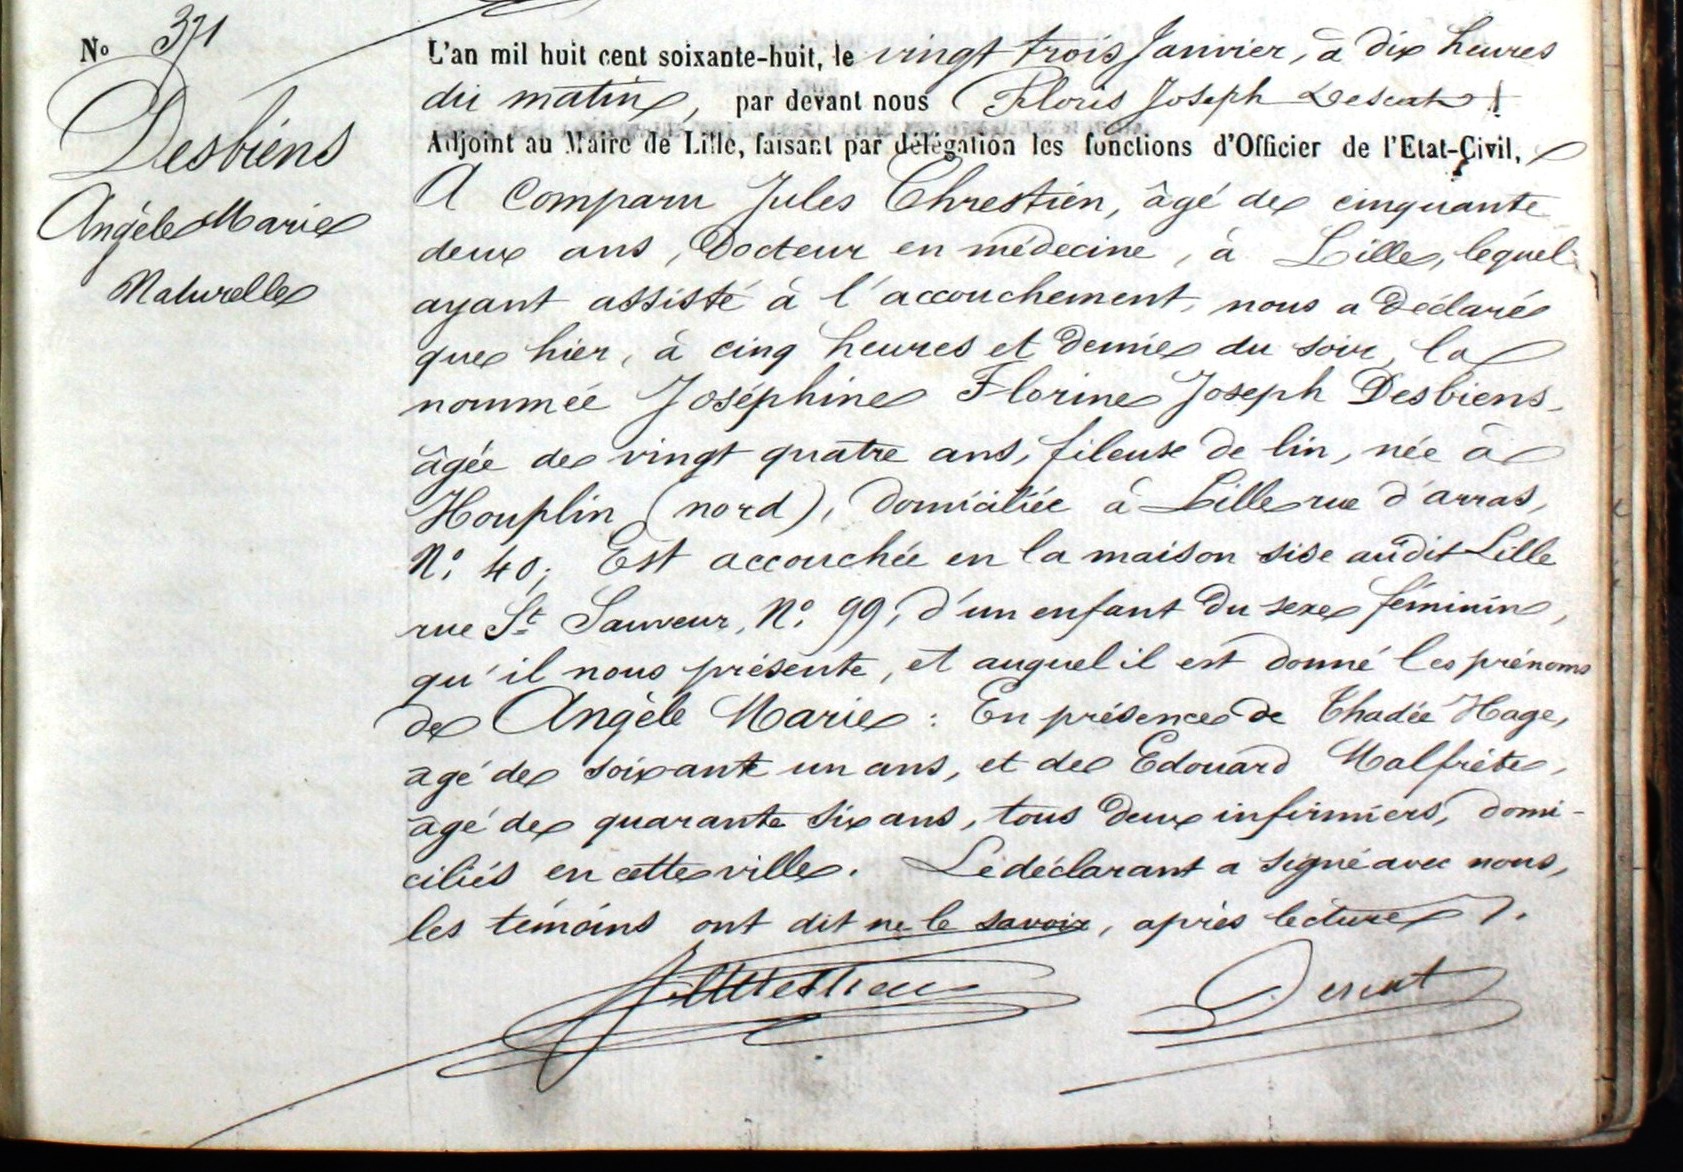 No 371
Desbiens
Angèle Marie
Naturelle
L'an mil huit cent soixante-huit, le vingt trois Janvier, à dix heures
du matin, par devant nous Floris Joseph Descat
Adjoint au Maire de Lille, faisant par délégation les fonctions d'Officier de l'Etat-Civil,
A Comparu Jules Chrestien, âgé de cinquante
deux ans, Docteur en médecine, à Lille, lequel
ayant assisté à l'accouchement, nous a déclaré
que hier, à cinq heures et demie du soir, la
nommée Joséphine Florine Joseph Desbiens
âgée de vingt quatre ans, fileuse de lin, née à
Houplin (nord), domiciliée à Lille rue d'arras,
No. 40; Est accouchée en la maison sise audit Lille
rue St. Sauveur, No. 99, d'un enfant du sexe féminin,
qu'il nous présente, et auquel il est donné les prénoms
de Angèle Marie : En présence de Thadée Hage,
agé de soixante un ans, et de Edouard Malfrète,
âgé de quarante six ans, tous deux infirmiers, domi-
ciliés en cette ville. Le déclarant a signé avec nous,
les témoins ont dit ne le savoir, après lecture.
J. Chrestien Descat